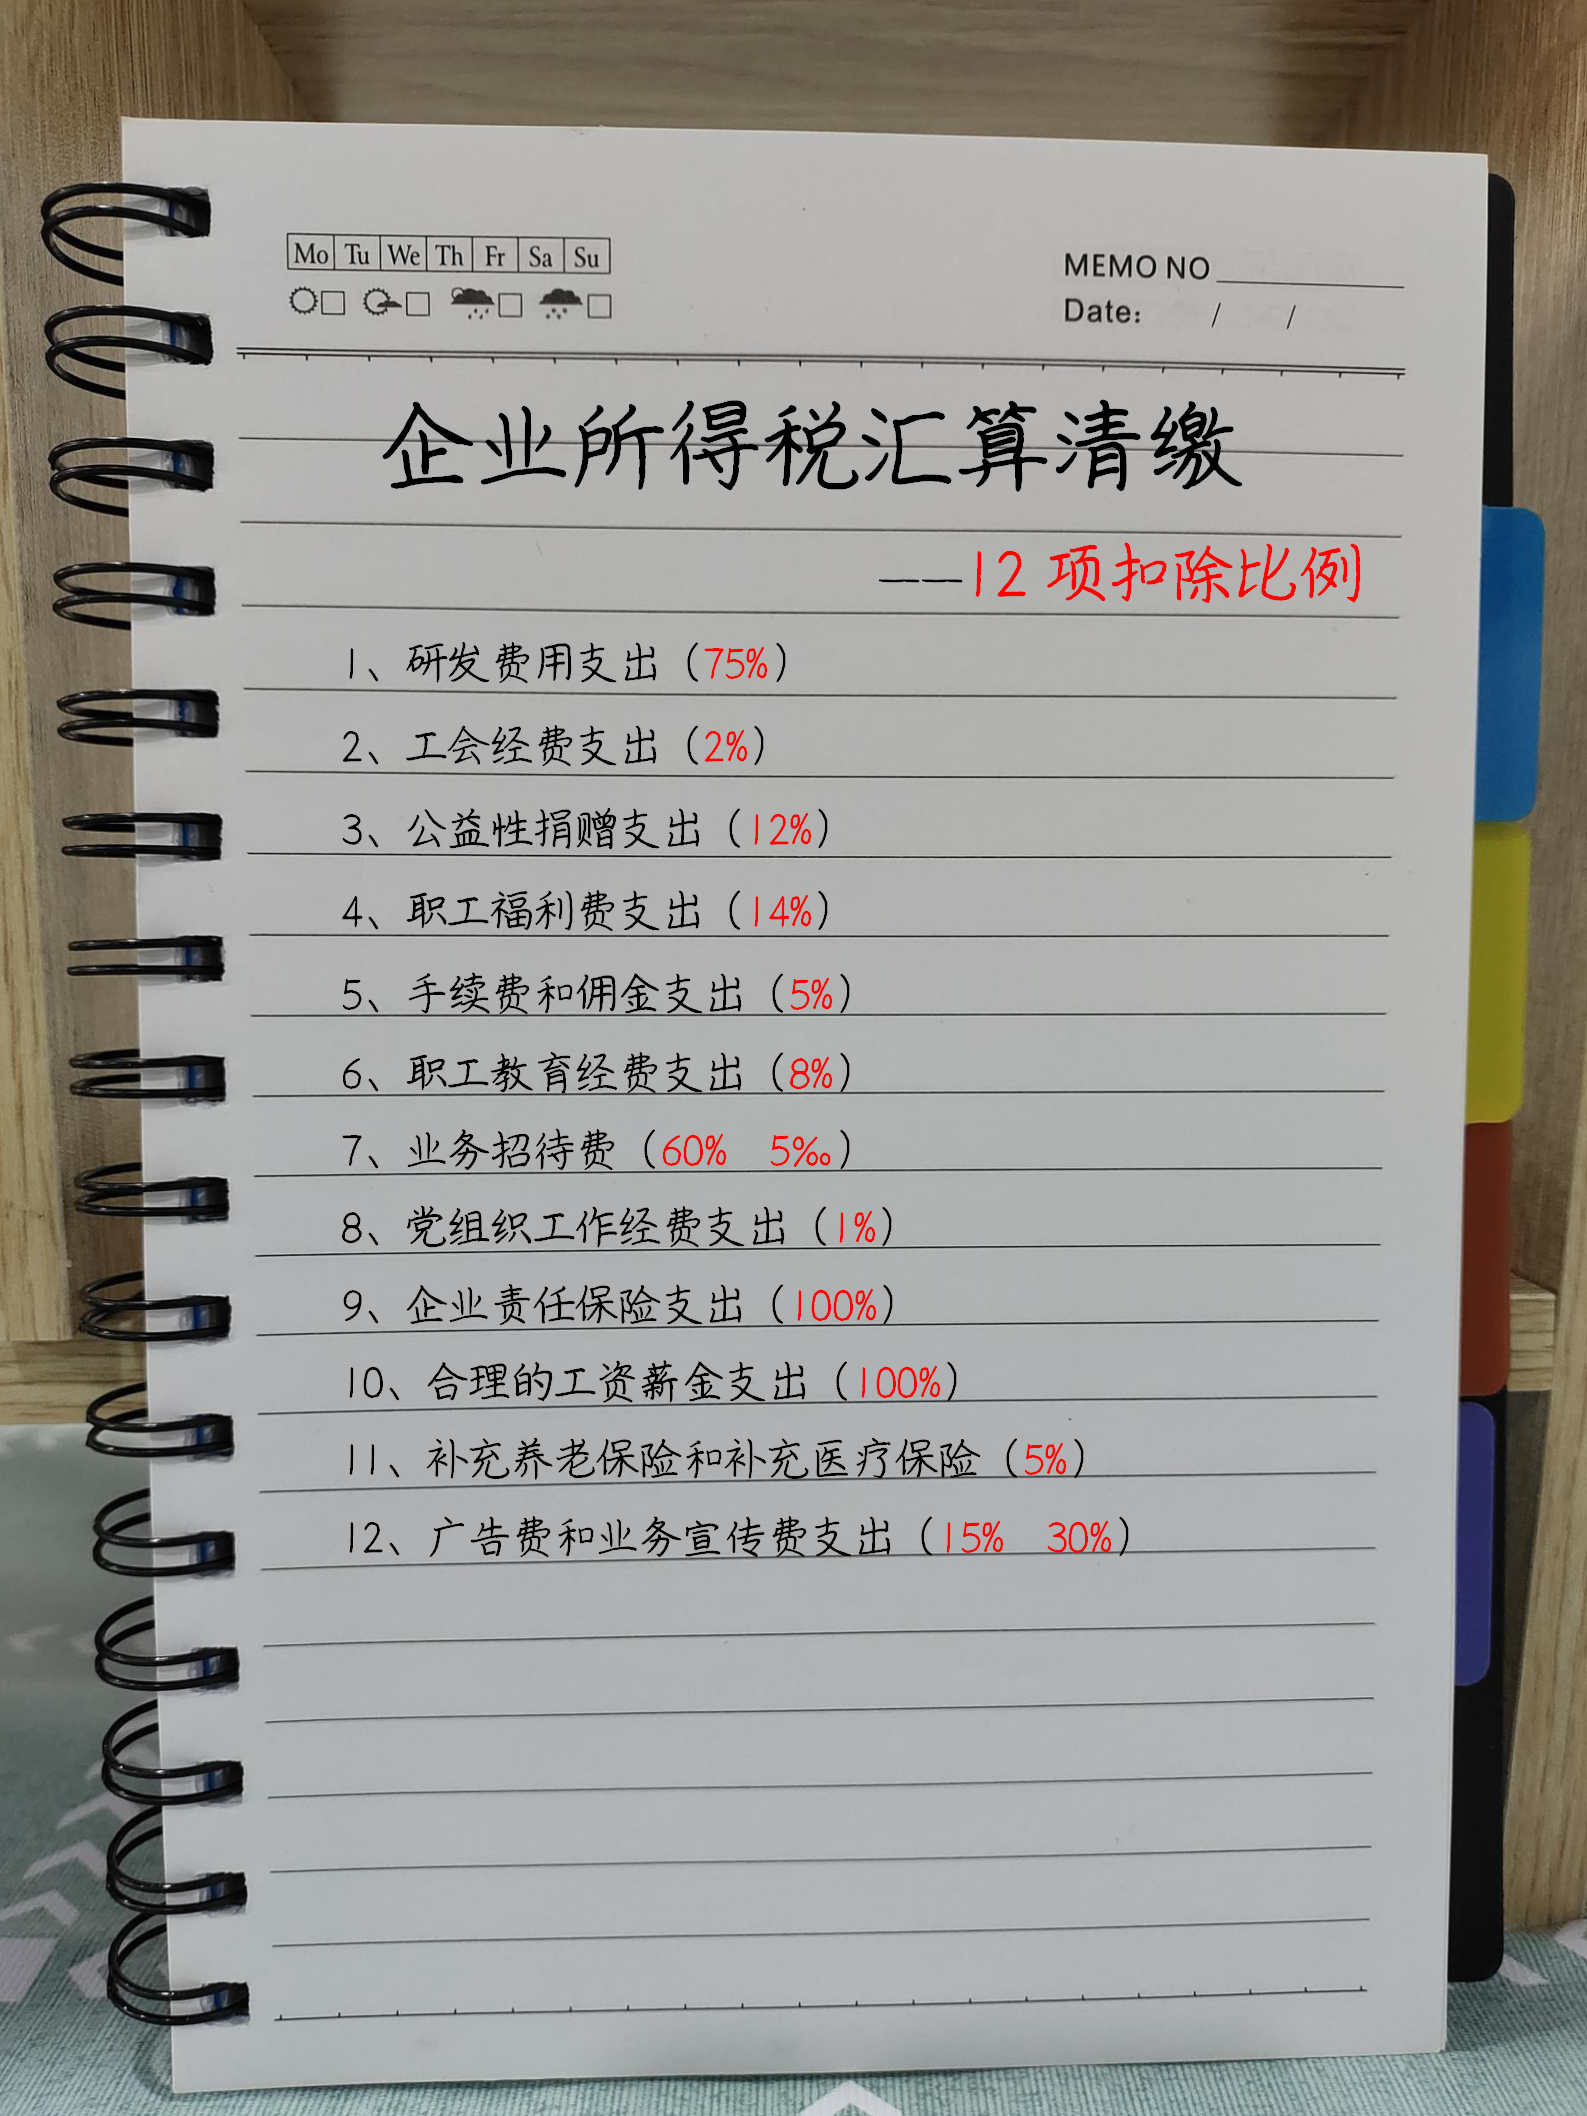 Mo Tu We Th Fr Sa Su
MEMO NO
Date: / /
企业所得税汇算清缴
——12 项扣除比例
1、研发费用支出（75%）
2、工会经费支出（2%）
3、公益性捐赠支出（12%）
4、职工福利费支出（14%）
5、手续费和佣金支出（5%）
6、职工教育经费支出（8%）
7、业务招待费（60% 5‰）
8、党组织工作经费支出（1%）
9、企业责任保险支出（100%）
10、合理的工资薪金支出（100%）
11、补充养老保险和补充医疗保险（5%）
12、广告费和业务宣传费支出（15% 30%）